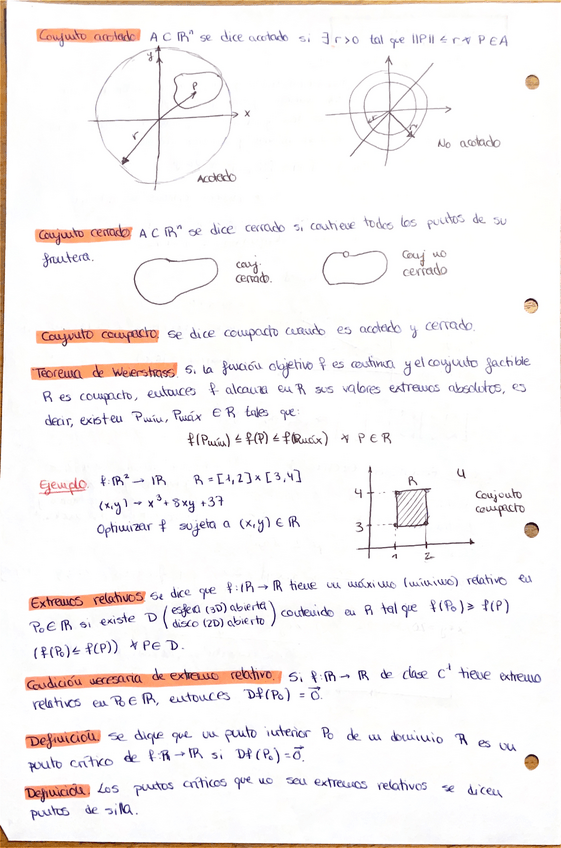 Conjunto acotado A ⊂ ℝⁿ se dice acotado si ∃ r>0 tal que ||P|| ≤ r ∀ P ∈ A
y
P
x
r
Acotado
r
r
No acotado
Conjunto cerrado A ⊂ ℝⁿ se dice cerrado si contiene todos los puntos de su
frontera.
conj.
cerrado.
Conj no
cerrado
Conjunto compacto. Se dice compacto cuando es acotado y cerrado.
Teorema de Weierstrass Si la función objetivo f es continua y el conjunto factible
R es compacto, entonces f alcanza en R sus valores extremos absolutos, es
decir, existen Pmín, Pmáx ∈ R tales que:
f(Pmín) ≤ f(P) ≤ f(Pmáx) ∀ P ∈ R
Ejemplo. f: ℝ² → ℝ R = [1,2] x [3,4]
(x,y) → x³ + 8xy + 37
Optimizar f sujeta a (x,y) ∈ R
R
4
3
1
2
4
Conjunto
compacto
Extremos relativos Se dice que f: R → ℝ tiene un máximo (mínimo) relativo en
P₀ ∈ R si existe D (esfera (3D) abierta / disco (2D) abierto) contenido en R tal que f(P₀) ≥ f(P)
(f(P₀) ≤ f(P)) ∀ P ∈ D.
Condición necesaria de extremo relativo. Si f: R → ℝ de clase C¹ tiene extremo
relativos en P₀ ∈ R, entonces Df(P₀) = 0⃗.
Definición Se dique que un punto interior P₀ de un dominio R es un
punto crítico de f: R → ℝ si Df(P₀) = 0⃗.
Definición. Los puntos críticos que no sen extremos relativos se dicen
puntos de silla.